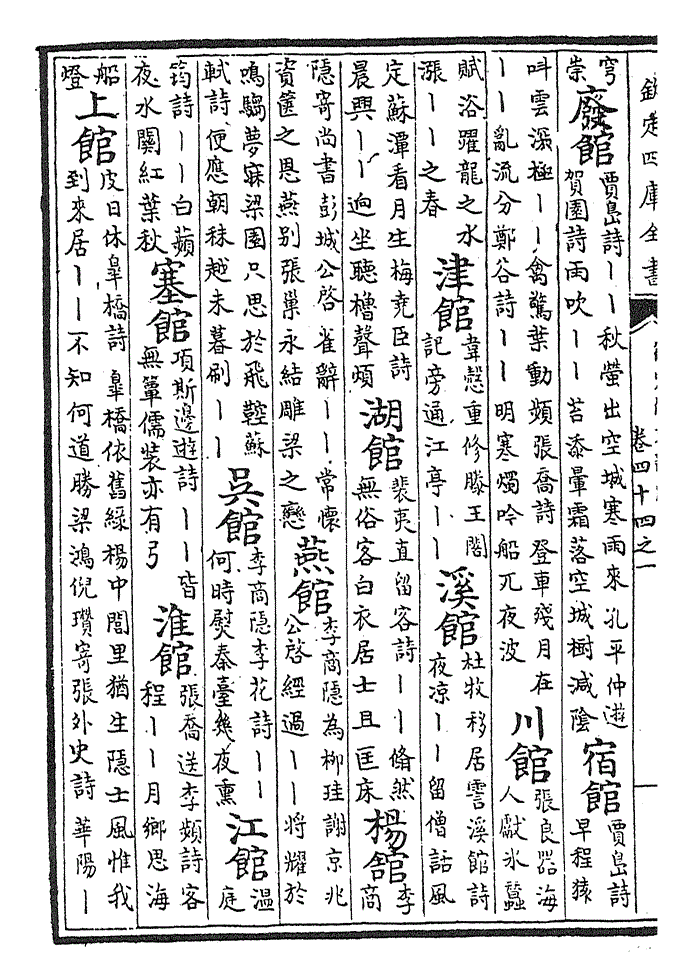 欽定四庫全書
卷四十四之一
穹
崇
廢館
賈島詩丨丨秋螢出空城寒雨來孔平仲遊
賀園詩雨吹丨丨苔添暈霜落空城樹減陰
宿館
賈島詩
早程猿
叫雲深極丨丨禽驚葉動頻張喬詩登車殘月在
丨丨亂流分鄭谷詩丨丨明寒燭吟船兀夜波
川館
張良器海
人獻氷蠶
賦浴躍龍之水
漲丨丨之春
津館
韋慤重修滕王閣
記旁通江亭丨丨
溪館
杜牧移居霅溪館詩
夜凉丨丨留僧話風
定蘇潭看月生梅堯臣詩
晨興丨丨逈坐聽櫓聲頻
湖館
裴夷直留客詩丨丨翛然
無俗客白衣居士且匡床
楊館
李
商
隱寄尚書彭城公啓雀辭丨丨常懷
資篋之恩燕别張巢永結雕梁之戀
燕館
李商隱為柳珪謝京兆
公啓經過丨丨将耀於
鳴騶夢寐梁園只思於飛鞚蘇
軾詩便應朝秣越未暮刷丨丨
吳館
李商隱李花詩丨丨
何時熨秦臺幾夜熏
江館
温
庭
筠詩丨丨白蘋
夜水闗紅葉秋
塞館
項斯邊遊詩丨丨皆
無篳儒裝亦有弓
淮館
張喬送李頻詩客
程丨丨月鄉思海
船
燈
上館
皮日休臯橋詩臯橋依舊綠楊中閭里猶生隱士風惟我
到來居丨丨不知何道勝梁鴻倪瓚寄張外史詩華陽丨